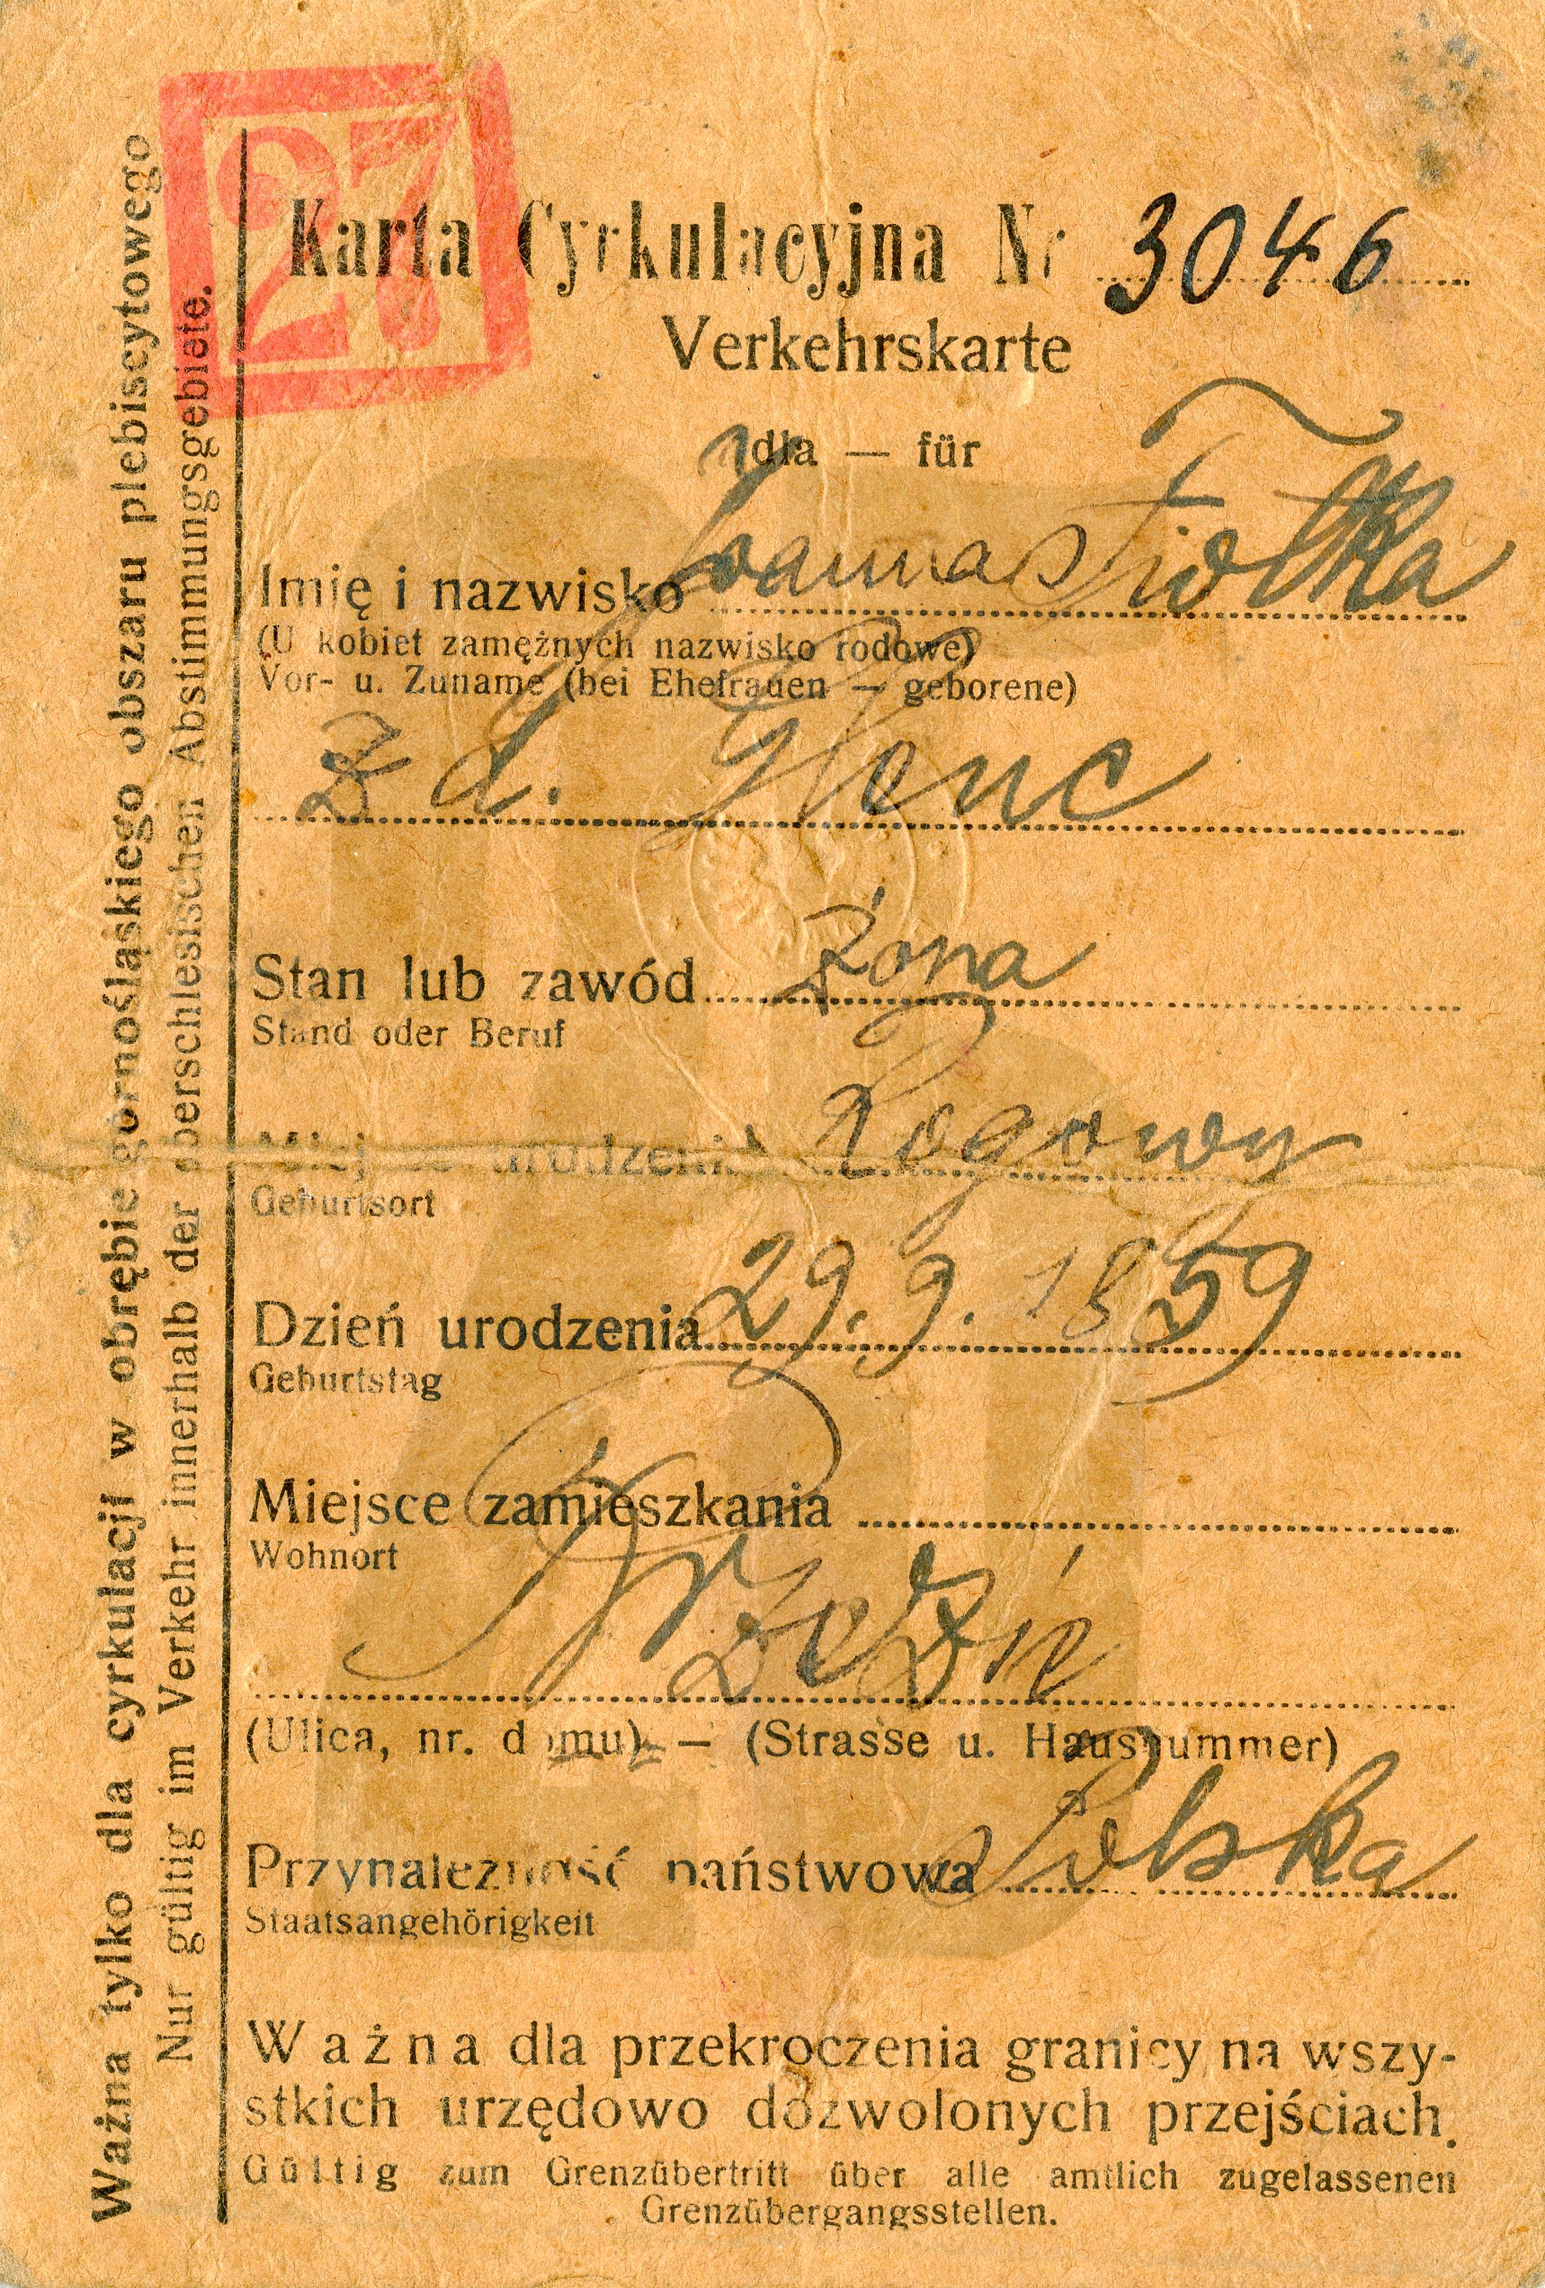 27
Karta Cyrkulacyjna Nr 3046
Verkehrskarte
dla — für
Imię i nazwisko Joanna Fiołka
(U kobiet zamężnych nazwisko rodowe)
Vor- u. Zuname (bei Ehefrauen — geborene)
z d. Wenc
Stan lub zawód żona
Stand oder Beruf
Miejsce urodzenia Rogowy
Geburtsort
Dzień urodzenia 29.9.1859
Geburtstag
Miejsce zamieszkania
Wohnort
Brzezin
(Ulica, nr. domu) — (Strasse u. Hausnummer)
Przynależność państwowa Polska
Staatsangehörigkeit
Ważna dla przekroczenia granicy na wszy-
stkich urzędowo dozwolonych przejściach.
Gültig zum Grenzübertritt über alle amtlich zugelassenen
Grenzübergangsstellen.
Ważna tylko dla cyrkulacji w obrębie górnośląskiego obszaru plebiscytowego
Nur gültig im Verkehr innerhalb der oberschlesischen Abstimmungsgebiete.